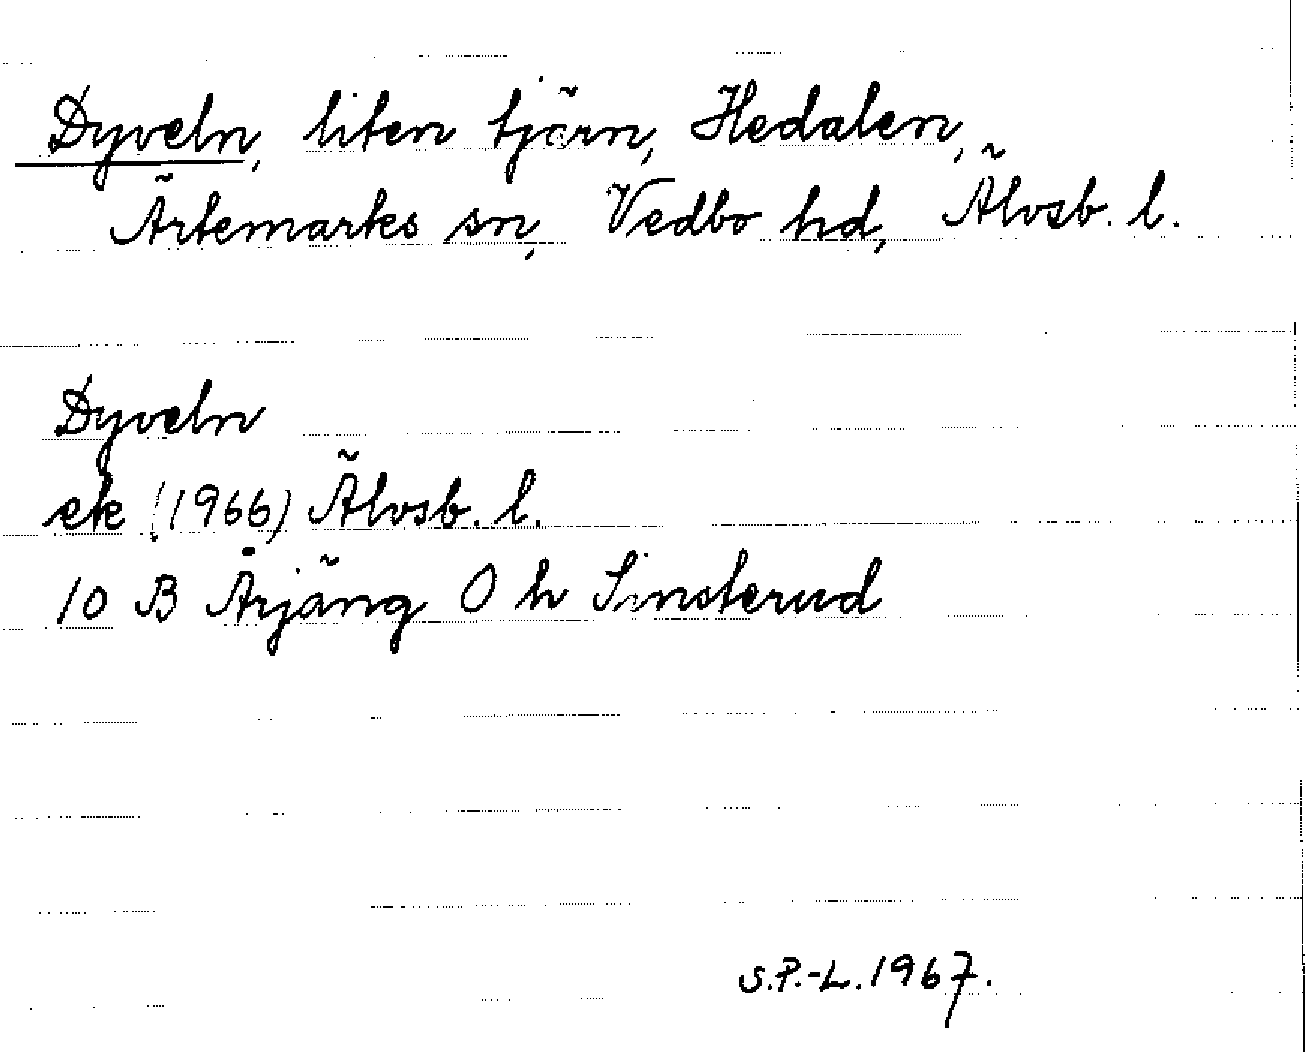 Dyveln, liten tjärn, Hedalen,
Ärtemarks sn, Vedbo hd, Älvsb. l.
Dyveln
ek (1966) Älvsb. l.
10 B Årjäng O h Sinsterud
S.P.-L. 1967.